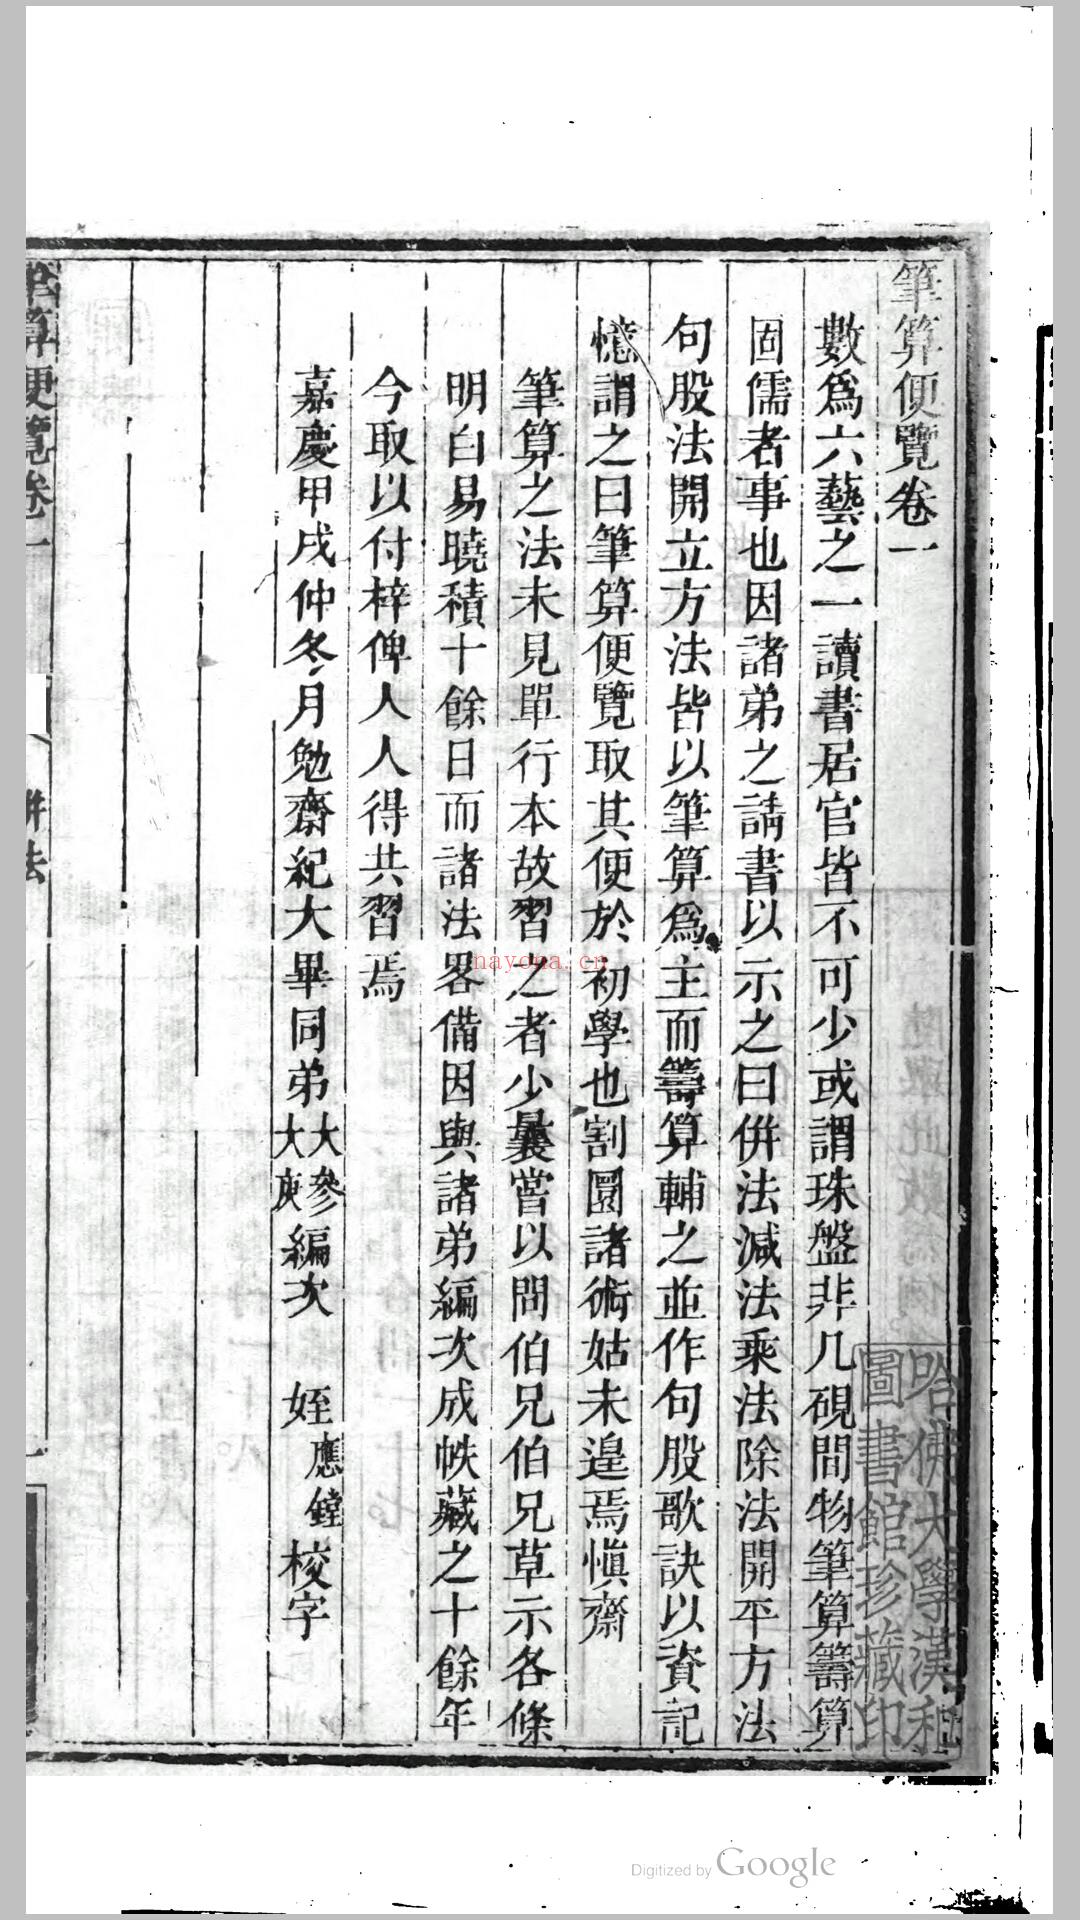 筆算便覽卷一
數爲六藝之一讀書居官皆不可少或謂珠盤非几硯間物筆算籌算
固儒者事也因諸弟之請書以示之曰併法減法乘法除法開平方法
句股法開立方法皆以筆算爲主而籌算輔之並作句股歌訣以資記
憶謂之曰筆算便覽取其便於初學也割圜諸術姑未遑焉愼齋
筆算之法未見單行本故習之者少曩嘗以問伯兄伯兄草示各條
明白易曉積十餘日而諸法畧備因與諸弟編次成帙藏之十餘年
今取以付梓俾人人得共習焉
嘉慶甲戌仲冬月勉齋紀大畢同弟大參大庚編次 姪應鏜校字
筆算便覽卷一 併法 一
哈佛大學漢和
圖書館珍藏印
nayona.cn
Digitized by Google